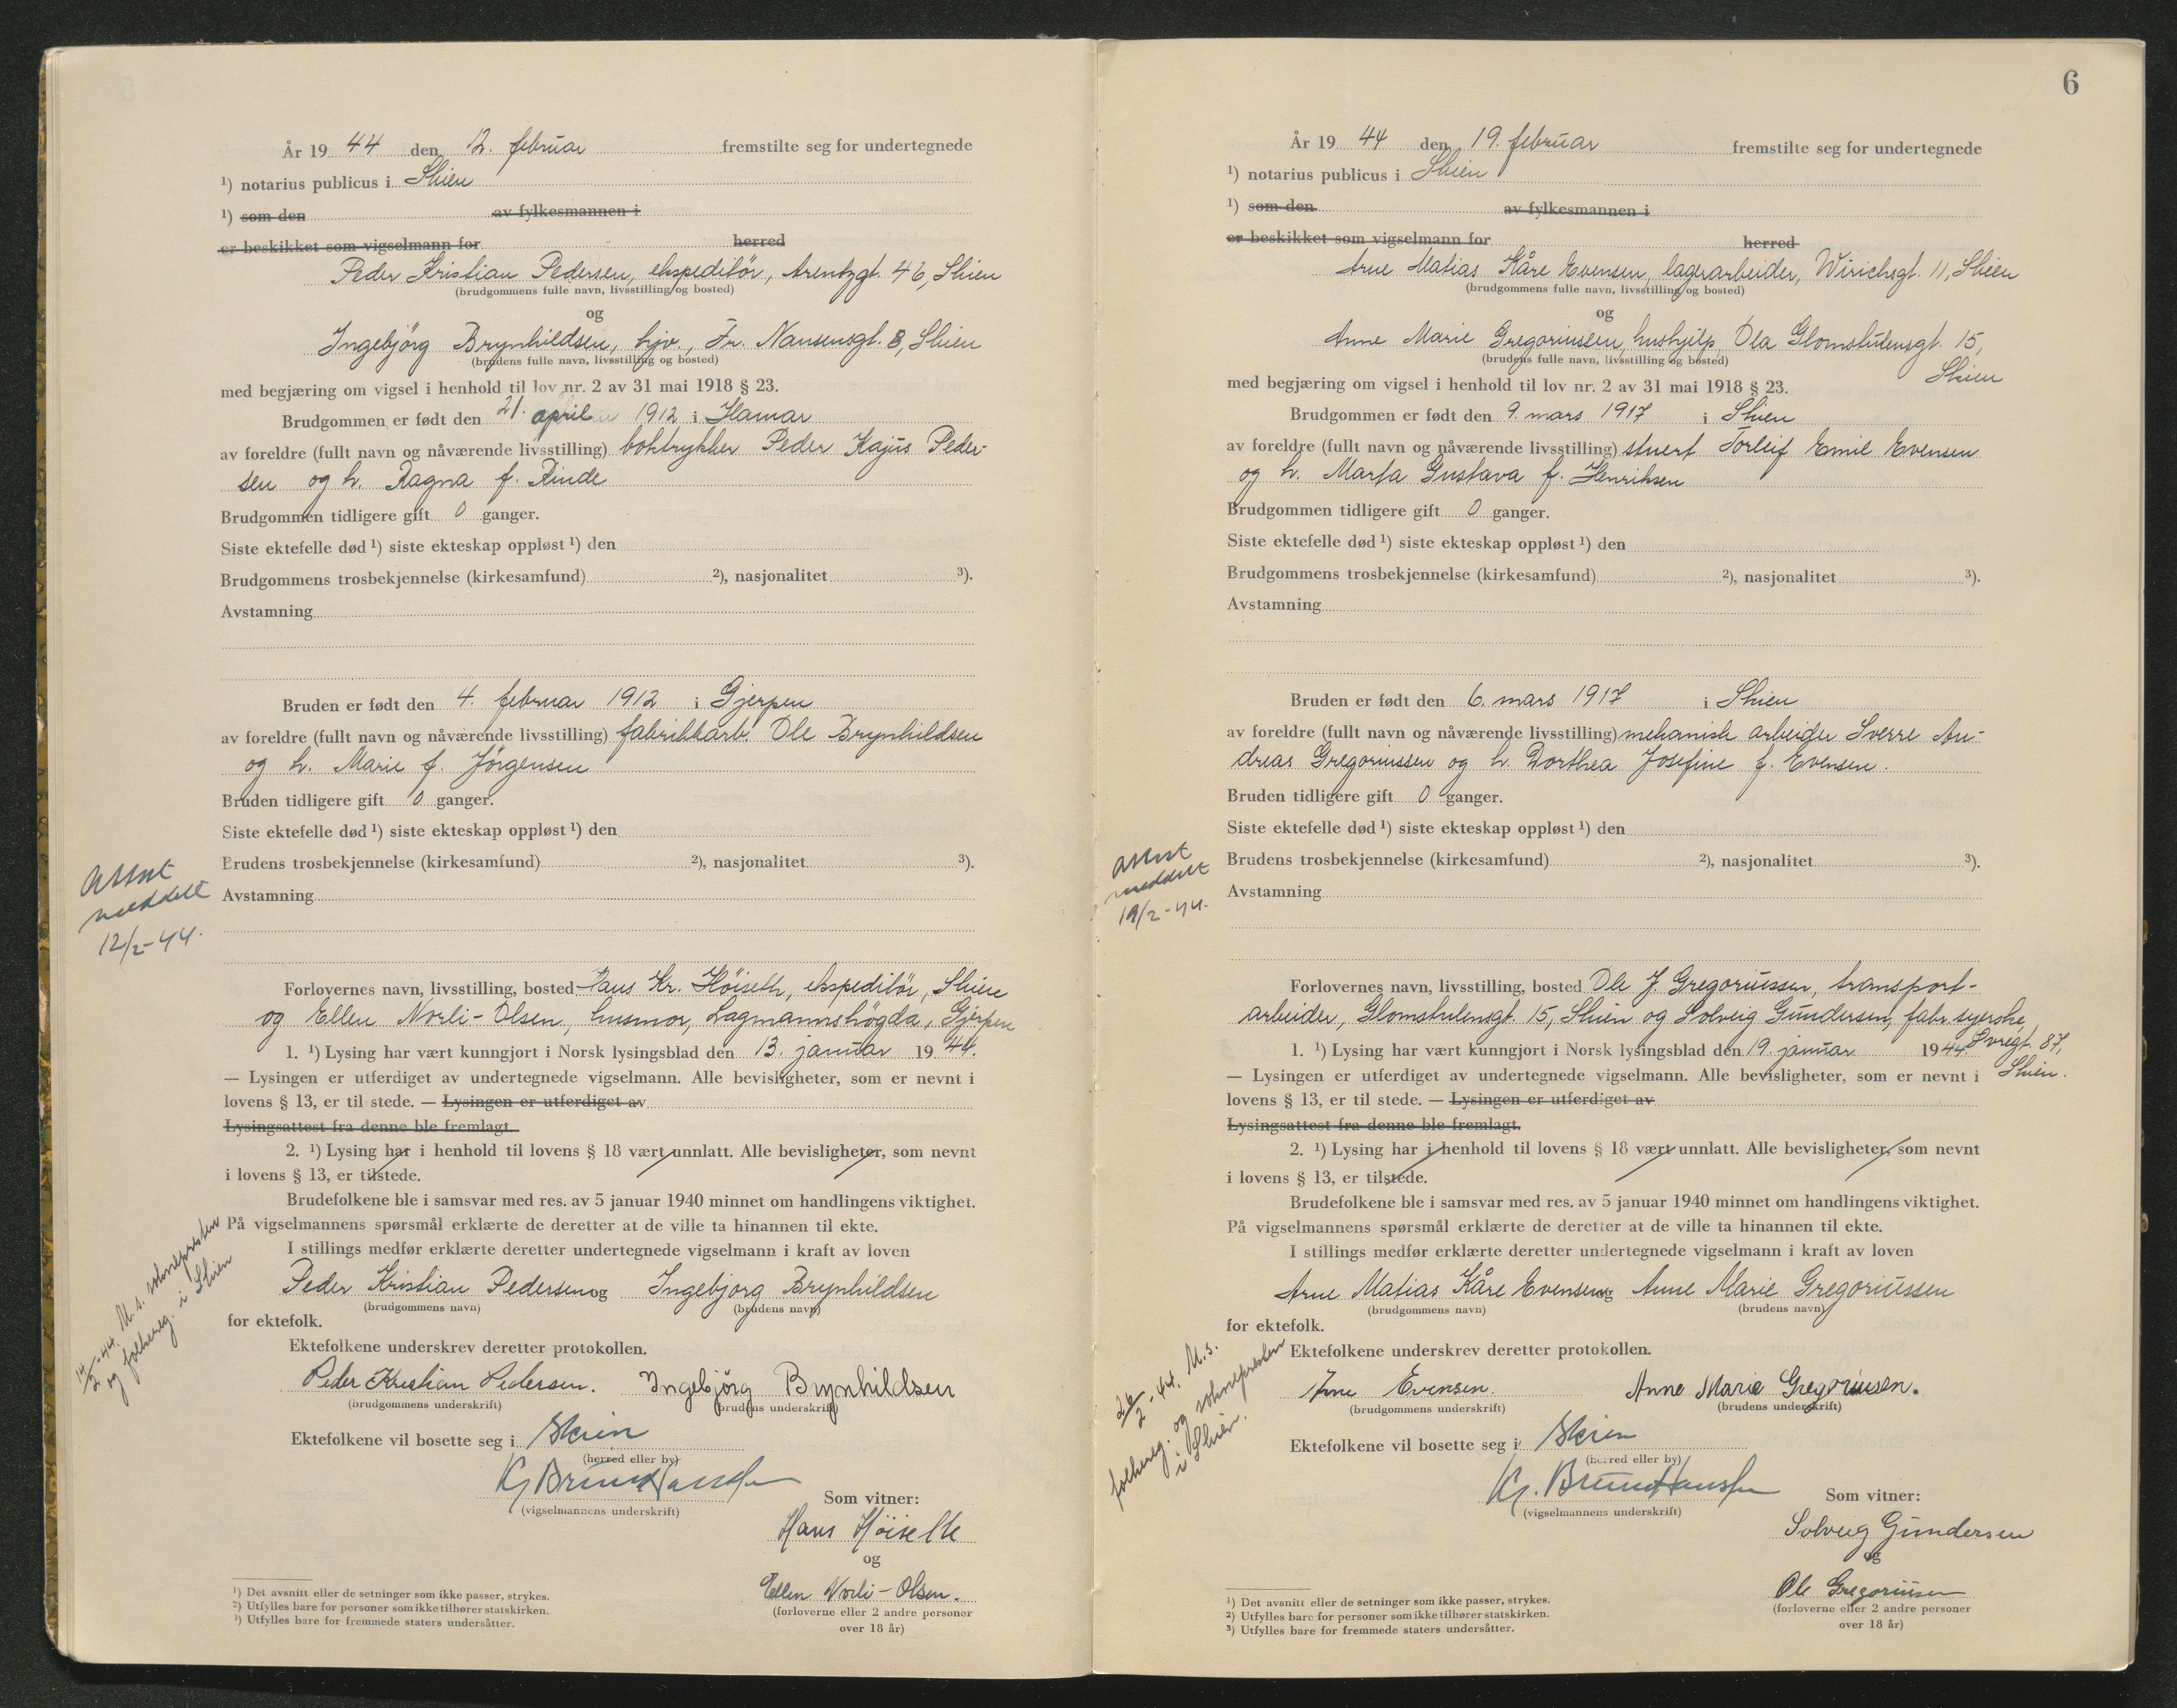 År 19 44 den 12. februar fremstilte seg for undertegnede
¹) notarius publicus i Skien
¹) som den av fylkesmannen i
er beskikket som vigselmann for herred
Peder Kristian Pedersen, ekspeditör, Arentzgt. 46, Skien
(brudgommens fulle navn, livsstilling og bosted)
og
Ingebjörg Brynhildsen, hjv., Fr. Nansensgt. 8, Skien
(brudens fulle navn, livsstilling og bosted)
med begjæring om vigsel i henhold til lov nr. 2 av 31 mai 1918 § 23.
Brudgommen er født den 21. april 1912 i Hamar
av foreldre (fullt navn og nåværende livsstilling) boktrykker Peder Kajus Peder-
sen og h. Ragna f. Rinde
Brudgommen tidligere gift 0 ganger.
Siste ektefelle død ¹) siste ekteskap oppløst ¹) den
Brudgommens trosbekjennelse (kirkesamfund) ²), nasjonalitet ³).
Avstamning
Bruden er født den 4. februar 1912 i Gjerpen
av foreldre (fullt navn og nåværende livsstilling) fabrikkarb. Ole Brynhildsen
og h. Marie f. Jörgensen
Bruden tidligere gift 0 ganger.
Siste ektefelle død ¹) siste ekteskap oppløst ¹) den
Brudens trosbekjennelse (kirkesamfund) ²), nasjonalitet ³).
Attest
meddelt
12/2-44.
Avstamning
Forlovernes navn, livsstilling, bosted Hans Kr. Höiseth, ekspeditör, Skien
og Ellen Norli-Olsen, husmor, Lagmannshögda, Gjerpen
1. ¹) Lysing har vært kunngjort i Norsk lysingsblad den 13. januar 19 44.
— Lysingen er utferdiget av undertegnede vigselmann. Alle bevisligheter, som er nevnt i
lovens § 13, er til stede. — Lysingen er utferdiget av
Lysingsattest fra denne ble fremlagt.
2. ¹) Lysing har i henhold til lovens § 18 vært unnlatt. Alle bevisligheter, som nevnt
i lovens § 13, er tilstede.
Brudefolkene ble i samsvar med res. av 5 januar 1940 minnet om handlingens viktighet.
På vigselmannens spørsmål erklærte de deretter at de ville ta hinannen til ekte.
I stillings medfør erklærte deretter undertegnede vigselmann i kraft av loven
Peder Kristian Pedersen og Ingebjorg Brynhildsen
(brudgommens navn) (brudens navn)
for ektefolk.
14/2-44. M.s. soknepresten
og folkereg. i Skien
Ektefolkene underskrev deretter protokollen.
Peder Kristian Pedersen. Ingebjörg Brynhildsen
(brudgommens underskrift) (brudens underskrift)
Ektefolkene vil bosette seg i Skien
(herred eller by)
(vigselmannens underskrift)
Som vitner:
Hans Höiseth
og
Ellen Norli-Olsen.
(forloverne eller 2 andre personer
over 18 år)
¹) Det avsnitt eller de setninger som ikke passer, strykes.
²) Utfylles bare for personer som ikke tilhører statskirken.
³) Utfylles bare for fremmede staters undersåtter.
6
År 19 44 den 19. februar fremstilte seg for undertegnede
¹) notarius publicus i Skien
¹) som den av fylkesmannen i
er beskikket som vigselmann for herred
Arne Matias Kåre Evensen, lagerarbeider, Wirichsgt. 11, Skien
(brudgommens fulle navn, livsstilling og bosted)
og
Anne Marie Gregoriussen, hushjelp, Ola Glomstulensgt. 15,
Skien
(brudens fulle navn, livsstilling og bosted)
med begjæring om vigsel i henhold til lov nr. 2 av 31 mai 1918 § 23.
Brudgommen er født den 9. mars 1917 i Skien
av foreldre (fullt navn og nåværende livsstilling) stuert Torleif Emil Evensen
og h. Marta Gustava f. Henriksen
Brudgommen tidligere gift 0 ganger.
Siste ektefelle død ¹) siste ekteskap oppløst ¹) den
Brudgommens trosbekjennelse (kirkesamfund) ²), nasjonalitet ³).
Avstamning
Bruden er født den 6. mars 1917 i Skien
av foreldre (fullt navn og nåværende livsstilling) mekanisk arbeider Sverre An-
dreas Gregoriussen og h. Dorthea Josefine f. Evensen.
Bruden tidligere gift 0 ganger.
Siste ektefelle død ¹) siste ekteskap oppløst ¹) den
Brudens trosbekjennelse (kirkesamfund) ²), nasjonalitet ³).
Attest
meddelt
19/2-44.
Avstamning
Forlovernes navn, livsstilling, bosted Ole J. Gregoriussen, transport-
arbeider, Glomstulensgt. 15, Skien og Solveig Gundersen, fabr. syerske,
1. ¹) Lysing har vært kunngjort i Norsk lysingsblad den 19. januar 19 44. 87,
Skien.
— Lysingen er utferdiget av undertegnede vigselmann. Alle bevisligheter, som er nevnt i
lovens § 13, er til stede. — Lysingen er utferdiget av
Lysingsattest fra denne ble fremlagt.
2. ¹) Lysing har i henhold til lovens § 18 vært unnlatt. Alle bevisligheter, som nevnt
i lovens § 13, er tilstede.
Brudefolkene ble i samsvar med res. av 5 januar 1940 minnet om handlingens viktighet.
På vigselmannens spørsmål erklærte de deretter at de ville ta hinannen til ekte.
I stillings medfør erklærte deretter undertegnede vigselmann i kraft av loven
Arne Matias Kåre Evensen og Anne Marie Gregoriussen
(brudgommens navn) (brudens navn)
for ektefolk.
26/2-44. M.s.
folkereg. og soknepresten
i Skien.
Ektefolkene underskrev deretter protokollen.
Arne Evensen. Anne Marie Gregoriusen.
(brudgommens underskrift) (brudens underskrift)
Ektefolkene vil bosette seg i Skien
(herred eller by)
(vigselmannens underskrift)
Som vitner:
Solveig Gundersen
og
Ole Gregoriusen
(forloverne eller 2 andre personer
over 18 år)
¹) Det avsnitt eller de setninger som ikke passer, strykes.
²) Utfylles bare for personer som ikke tilhører statskirken.
³) Utfylles bare for fremmede staters undersåtter.